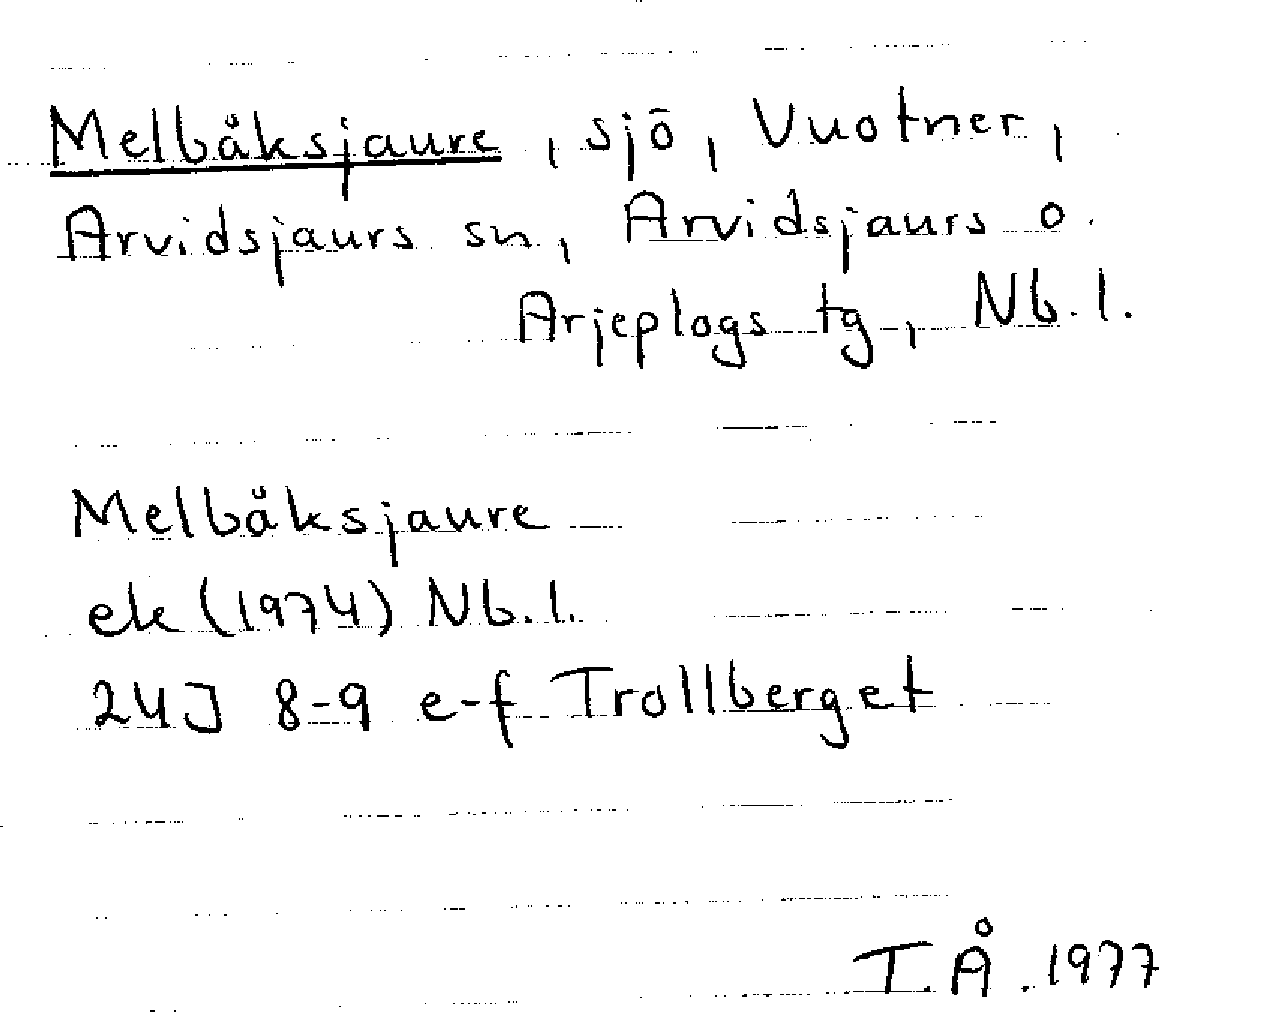 Melbåksjaure, sjö, Vuotner,
Arvidsjaurs sn, Arvidsjaurs o.
Arjeplogs tg, Nb. l.
Melbåksjaure
ek (1974) Nb. l.
24J 8-9 e-f Trollberget
T.Å. 1977